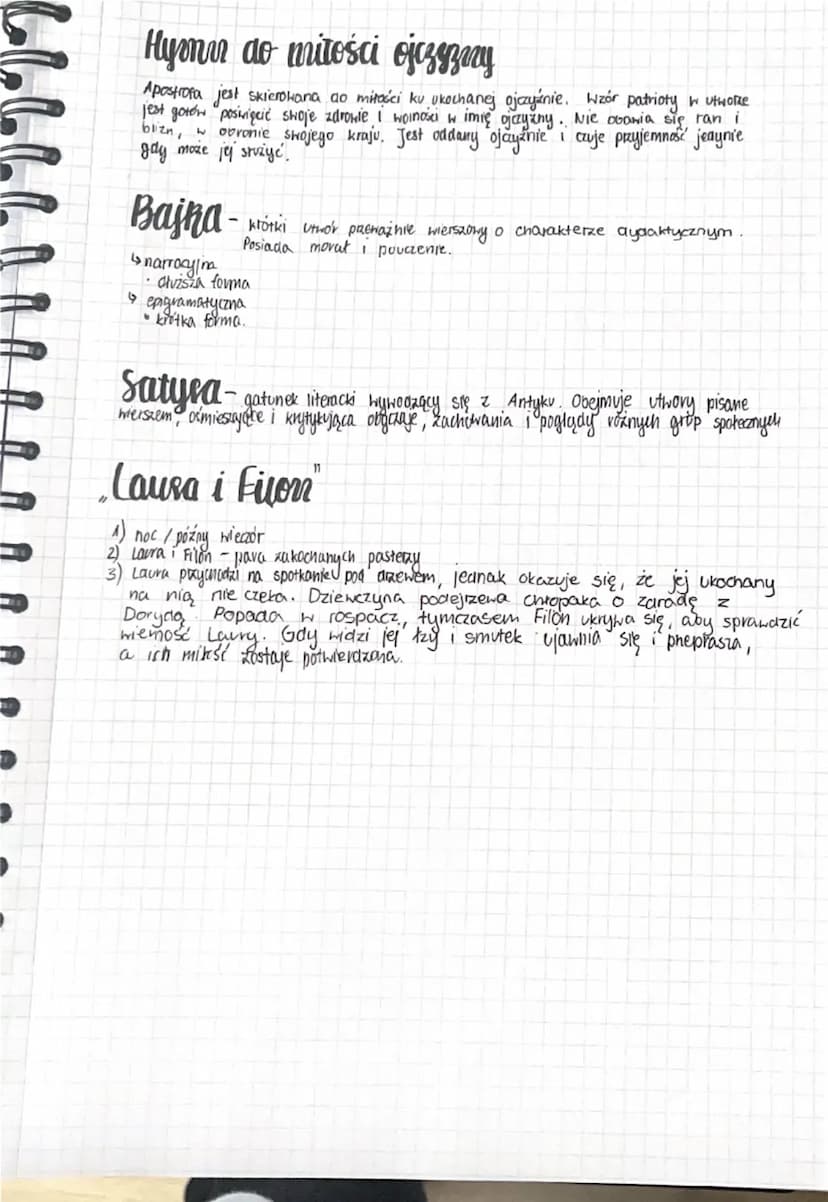 Hymn do miłości ojczyzny
Apostrofa jest skierowana do miłości ku ukochanej ojczyźnie. Wzór patrioty w utworze
jest gotów poświęcić swoje zdrowie i wolność w imię ojczyzny. Nie obawia się ran i
blizn, w obronie swojego kraju. Jest oddany ojczyźnie i czuje przyjemność jedynie
gdy może jej służyć.
Bajka - krótki utwór przeważnie wierszowy o charakterze dydaktycznym.
Posiada morał i pouczenie.
↳ narracyjna
• dłuższa forma
↳ epigramatyczna
• krótka forma.
Satyra - gatunek literacki wywodzący się z Antyku. Obejmuje utwory pisane
wierszem, ośmieszające i krytykująca obyczaje, zachowania i poglądy różnych grup społecznych
„Laura i Filon"
1) noc / późny wieczór
2) Laura i Filon - para zakochanych pasterzy
3) Laura przychodzi na spotkanie pod drzewem, jednak okazuje się, że jej ukochany
na nią nie czeka. Dziewczyna podejrzewa chłopaka o zdradę z
Dorydą. Popada w rospacz, tymczasem Filon ukrywa się, aby sprawdzić
wierność Laury. Gdy widzi jej łzy i smutek ujawnia się i przeprasza,
a ich miłość zostaje potwierdzona.